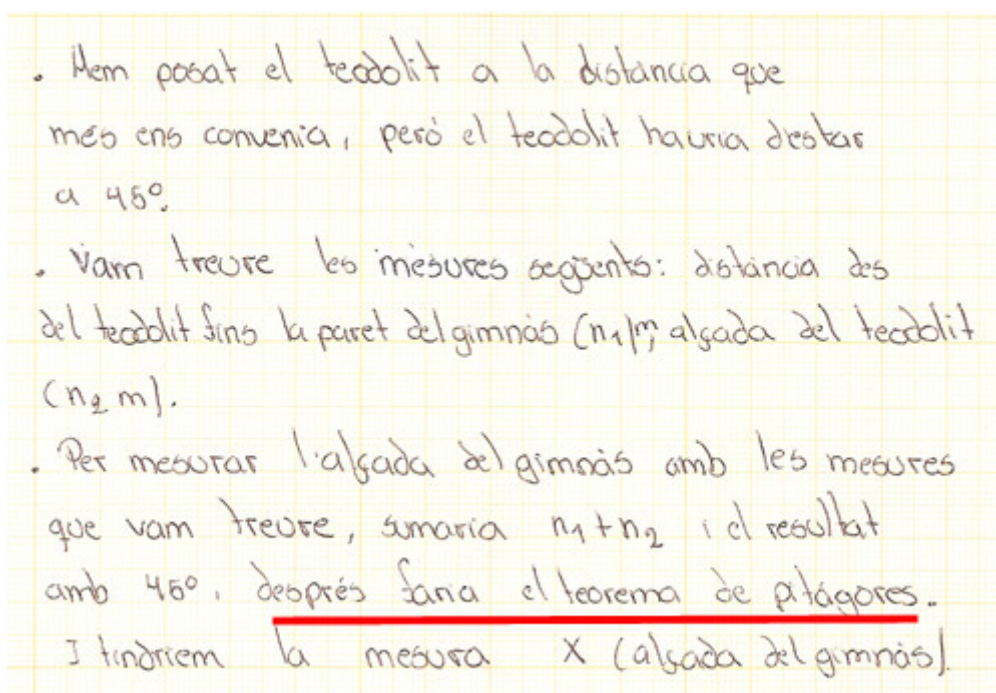 . Hem posat el teodolit a la distància que
més ens convenia, però el teodolit hauria d'estar
a 45º.
. Vam treure les mesures següents: distància des
del teodolit fins la paret del gimnàs (n₁)m, alçada del teodolit
(n₂ m).
. Per mesurar l'alçada del gimnàs amb les mesures
que vam treure, sumaria n₁ + n₂ i el resultat
amb 45º. després faria el teorema de pitàgores.
I tindriem la mesura X (alçada del gimnàs).